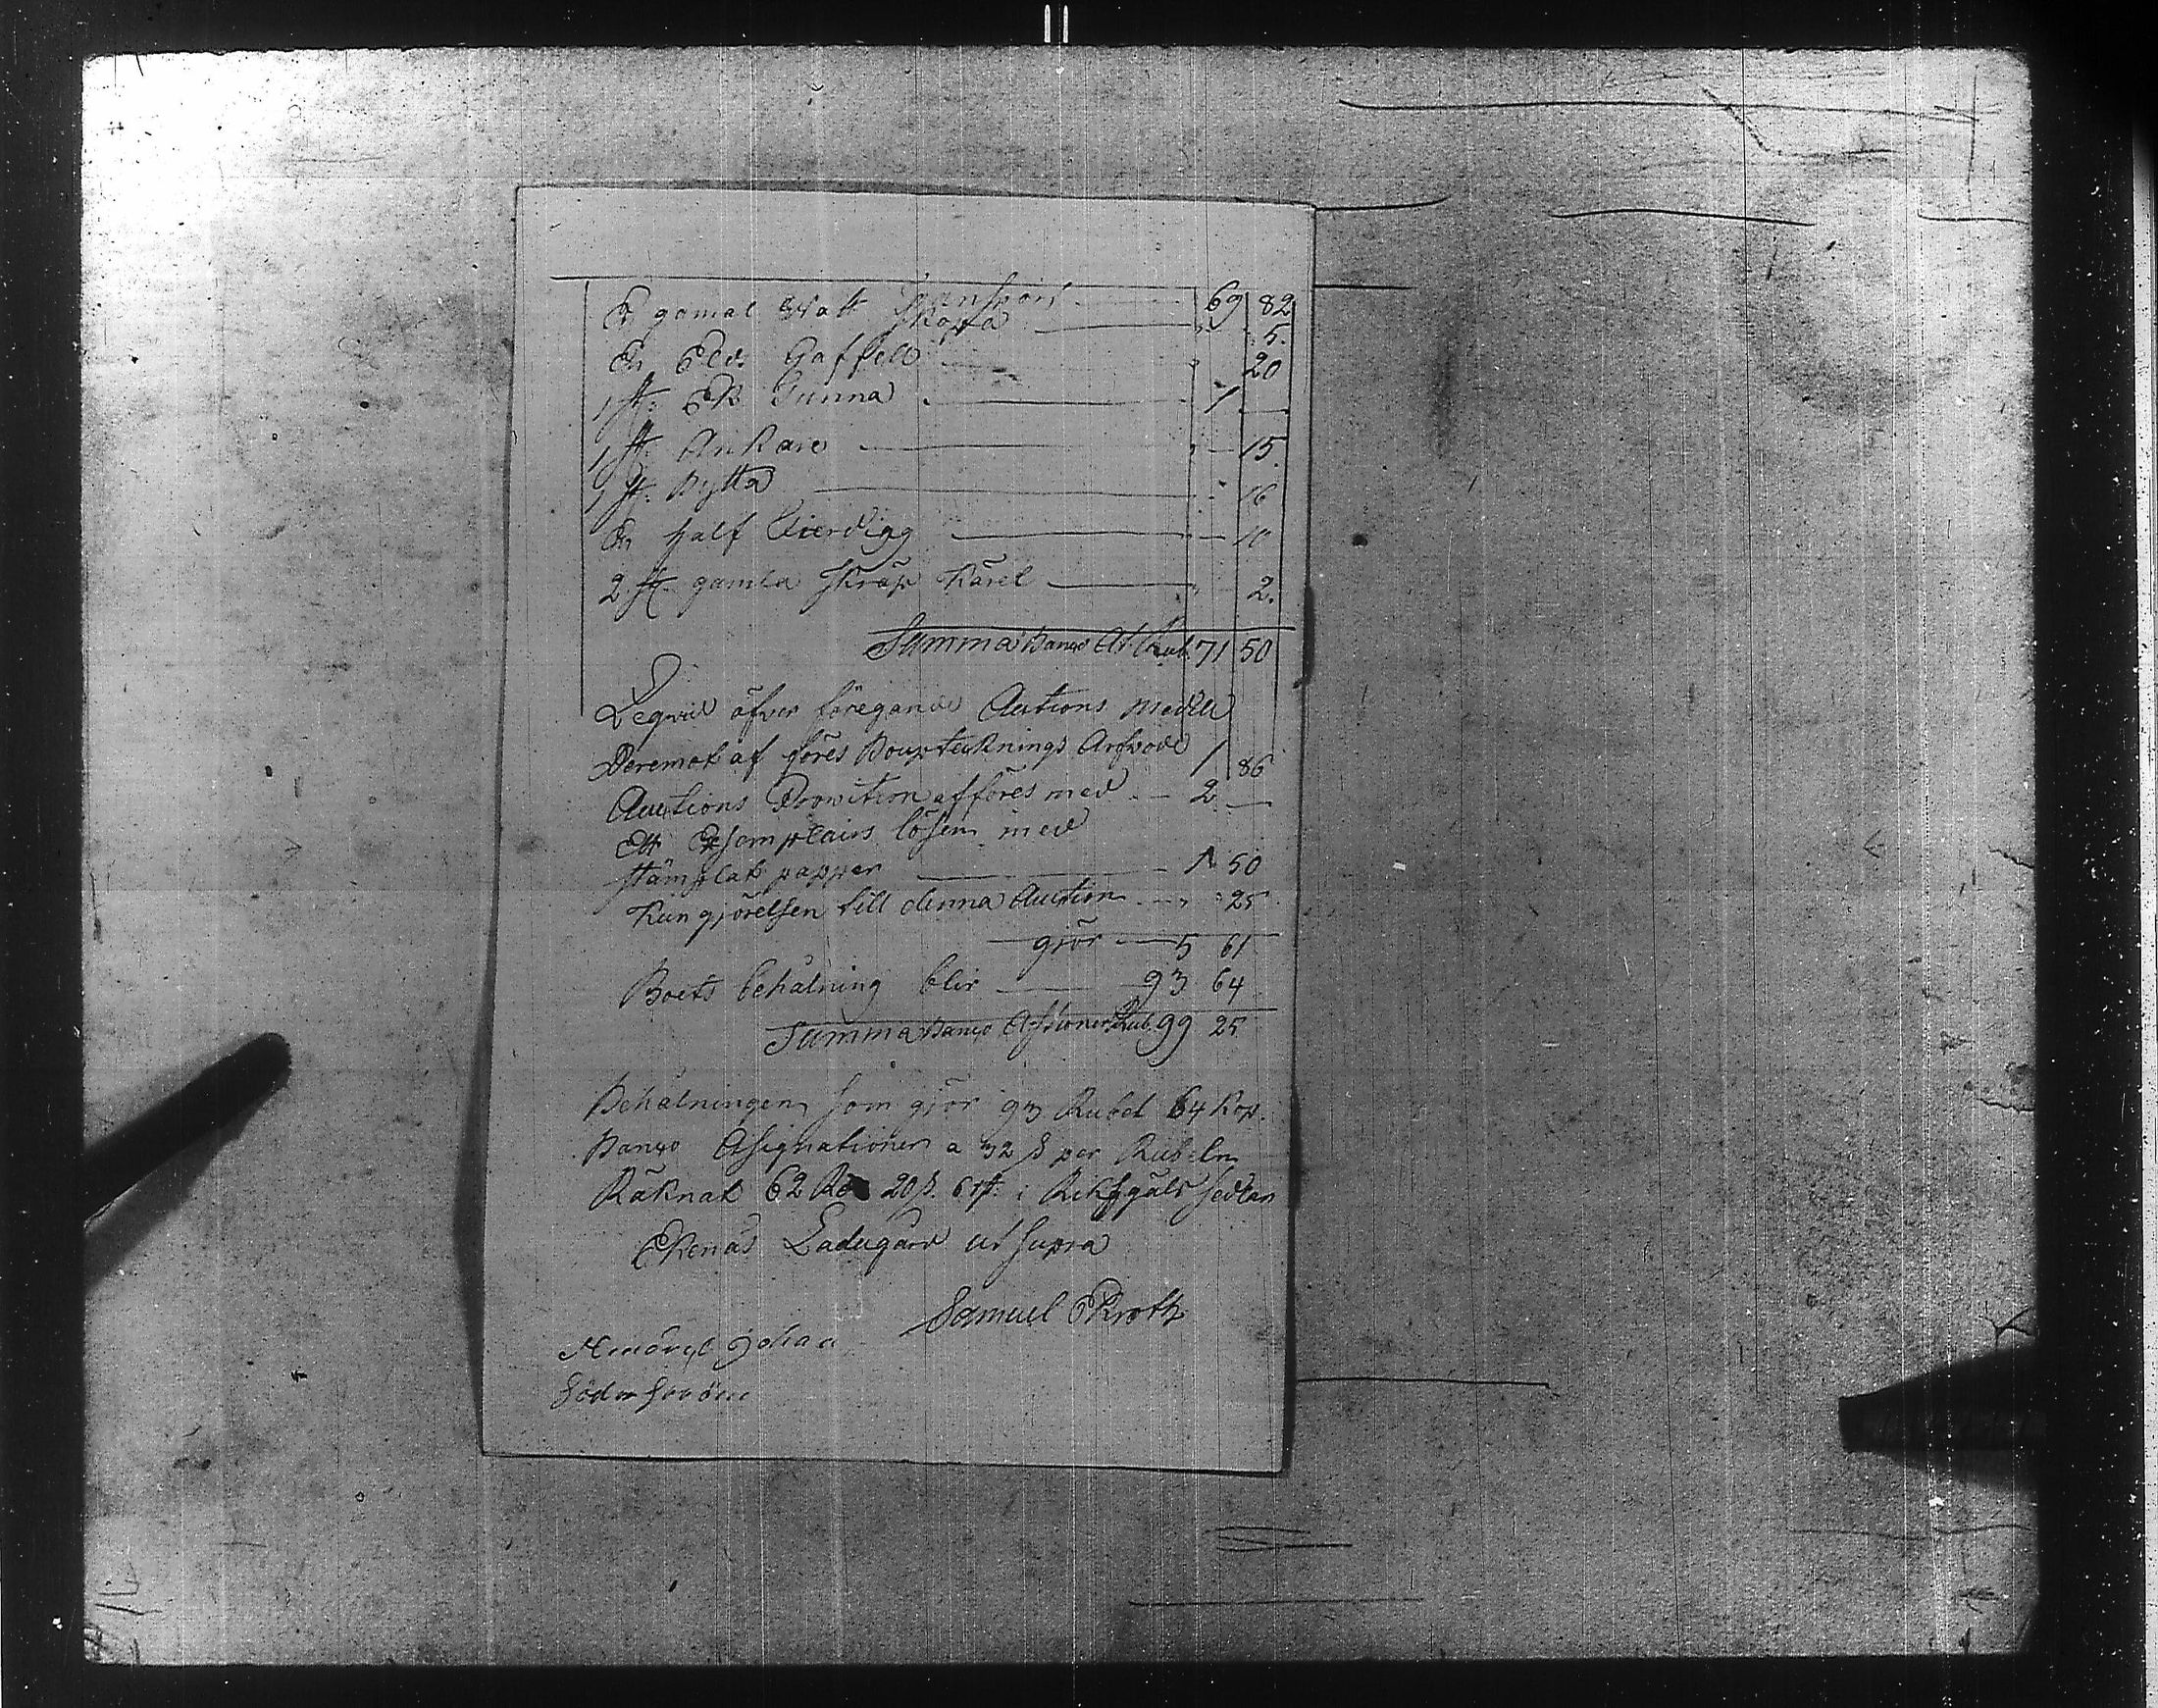 Transport 69 82
En gamal Watt Skopa " 5.
En Eld: Gaffell " 20
1 st: Ek Tunna 1 —
1 st: Ankare " 15.
1 st: Bytta " 16
En half fierding " 10
2 st. gamla skräp Kärel " 2.
Summa Banco At: Rub. 71 50
Leqvid öfverföregande Autions medell
Deremot af föres Boupteknings Arfvode 1 86
Auctions Prowition afföres med 2 —
Ett Exsemplairs lösen med
stämplat papper 1 50
Kungjörelsen till denna Auction " 25
gjör 5 61
Boets behålning blir 93 64
Summa Banco Assioner Rub. 99 25
Behålningen som gjör 93 Rubel 64 Kop.
Banco Assignationer a 32 s per Rubeln
Räknat 62 Rd 20 s. 6 rst: i Riksgäls sedlar
Ekenäs Ladugård ut supra
Samuel Ekroth
Johan
Söderström